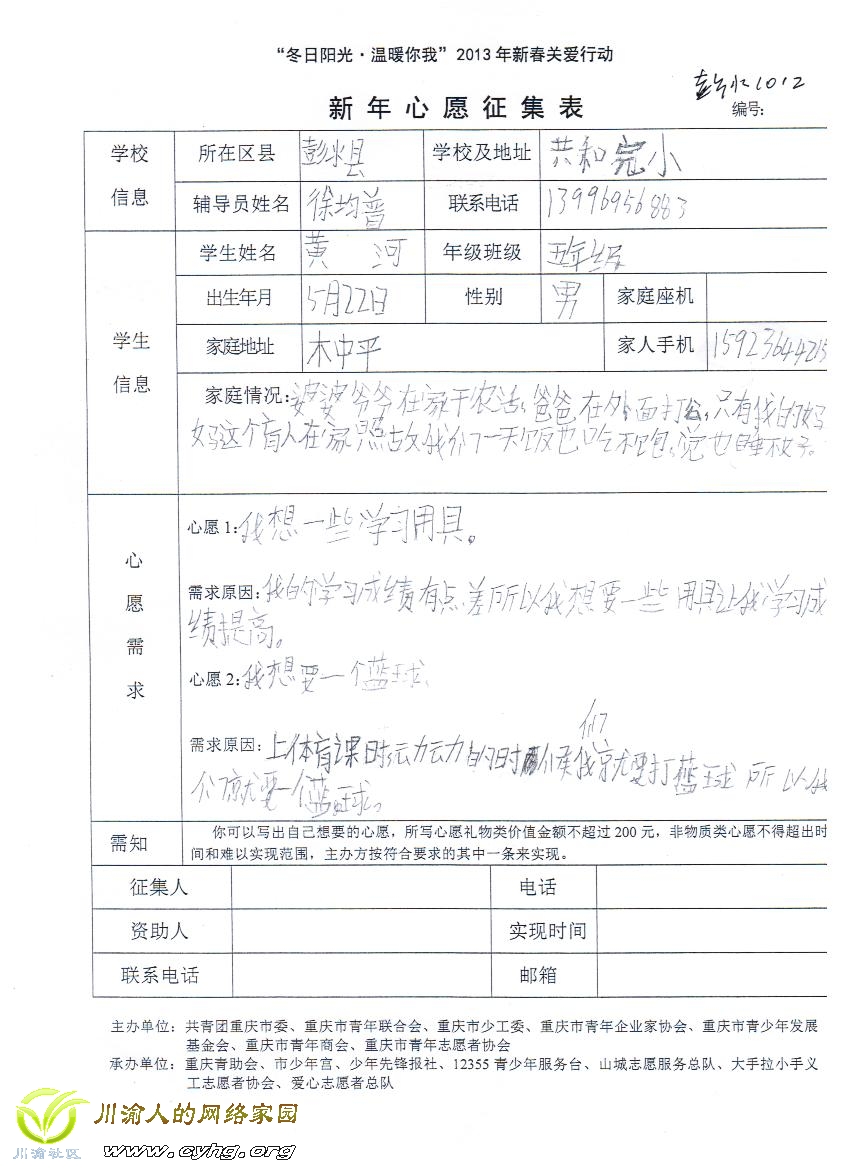 “冬日阳光·温暖你我”2013年新春关爱行动
彭水1012
新年心愿征集表
编号:
学校信息 所在区县 彭水县 学校及地址 共和完小
辅导员姓名 徐均普 联系电话 13996956883
学生信息 学生姓名 黄河 年级班级 五年级
出生年月 5月22日 性别 男 家庭座机
家庭地址 木中平 家人手机 15923644215
家庭情况:婆婆爷爷在家干农活,爸爸在外面打公,只有我的妈
妈这个盲人在家照故我们一天饭也吃不包,觉也睡不好。
心愿需求 心愿1:我想一些学习用具。
需求原因:我的学习成绩有点差所以我想要一些用具让我学习成
绩提高。
心愿2:我想要一个蓝球。
需求原因:上体育课时运力云力的时候我们就要打蓝球所以我
们就要一个蓝球。
需知 你可以写出自己想要的心愿,所写心愿礼物类价值金额不超过200元,非物质类心愿不得超出时
间和难以实现范围,主办方按符合要求的其中一条来实现。
征集人 电话
资助人 实现时间
联系电话 邮箱
主办单位:共青团重庆市委、重庆市青年联合会、重庆市少工委、重庆市青年企业家协会、重庆市青少年发展
基金会、重庆市青年商会、重庆市青年志愿者协会
承办单位:重庆青助会、市少年宫、少年先锋报社、12355青少年服务台、山城志愿服务总队、大手拉小手义
工志愿者协会、爱心志愿者总队
川渝人的网络家园
川渝社区 www.cyhg.org